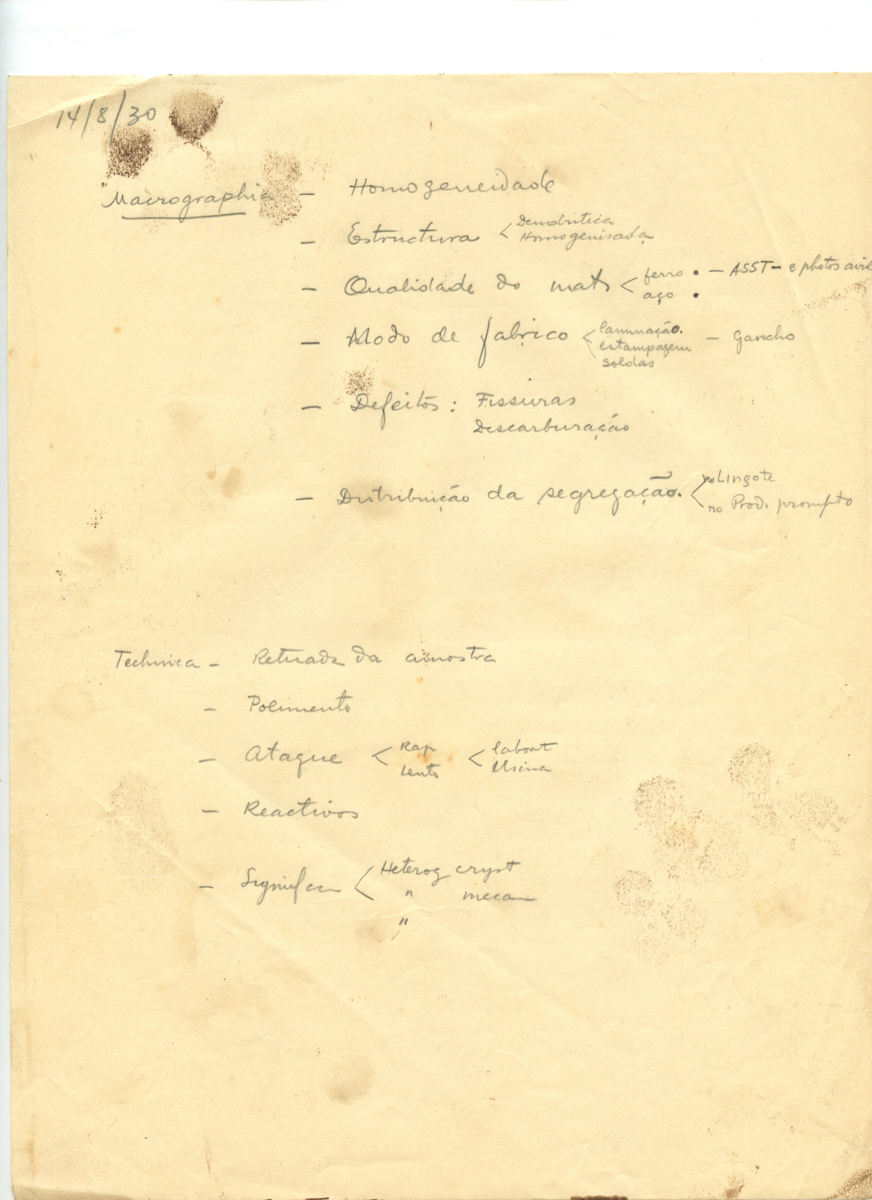 14/8/30
Macrographia – Homogeneidade
– Estructura < Dendritica
Homogenisada
– Qualidade do mat < ferro • – ASST – e photos
aço •
– Modo de fabrico < laminação.
estampagem – Gancho
soldas
– Defeitos : Fissuras
Descarburação
– Distribuição da segregação. < no Lingote
no Prod. prompto
Technica – Retirada da amostra
– Polimento
– Ataque < Rap < labort
Lento Usina
– Reactivos
– < Heterog cryst
" mecan
"